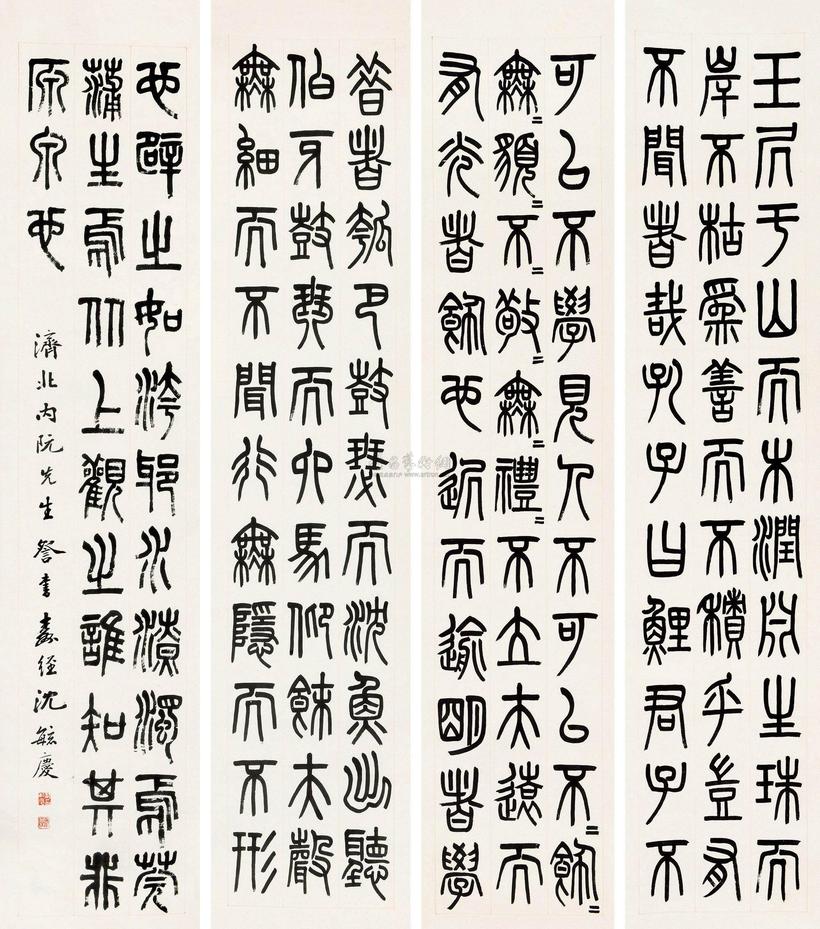 玉居于山而木潤淵生珠而
岸不枯為善而不積乎豈有
不聞者哉孔子曰鯉君子不
可以不學見人不可以不〻飾〻
無〻貌〻不〻敬〻無〻禮〻不立夫遠而
有光者飾也近而逾明者學
昔者瓠巴鼓瑟而沈魚出聽
伯牙鼓琴而六馬仰秣夫聲
無細而不聞行無隱而不形
也辟之如洿邪水潦灟焉莞
蒲生焉从上觀之誰知其非
原泉也
濟北內阮先生詧書壽經沈毓慶